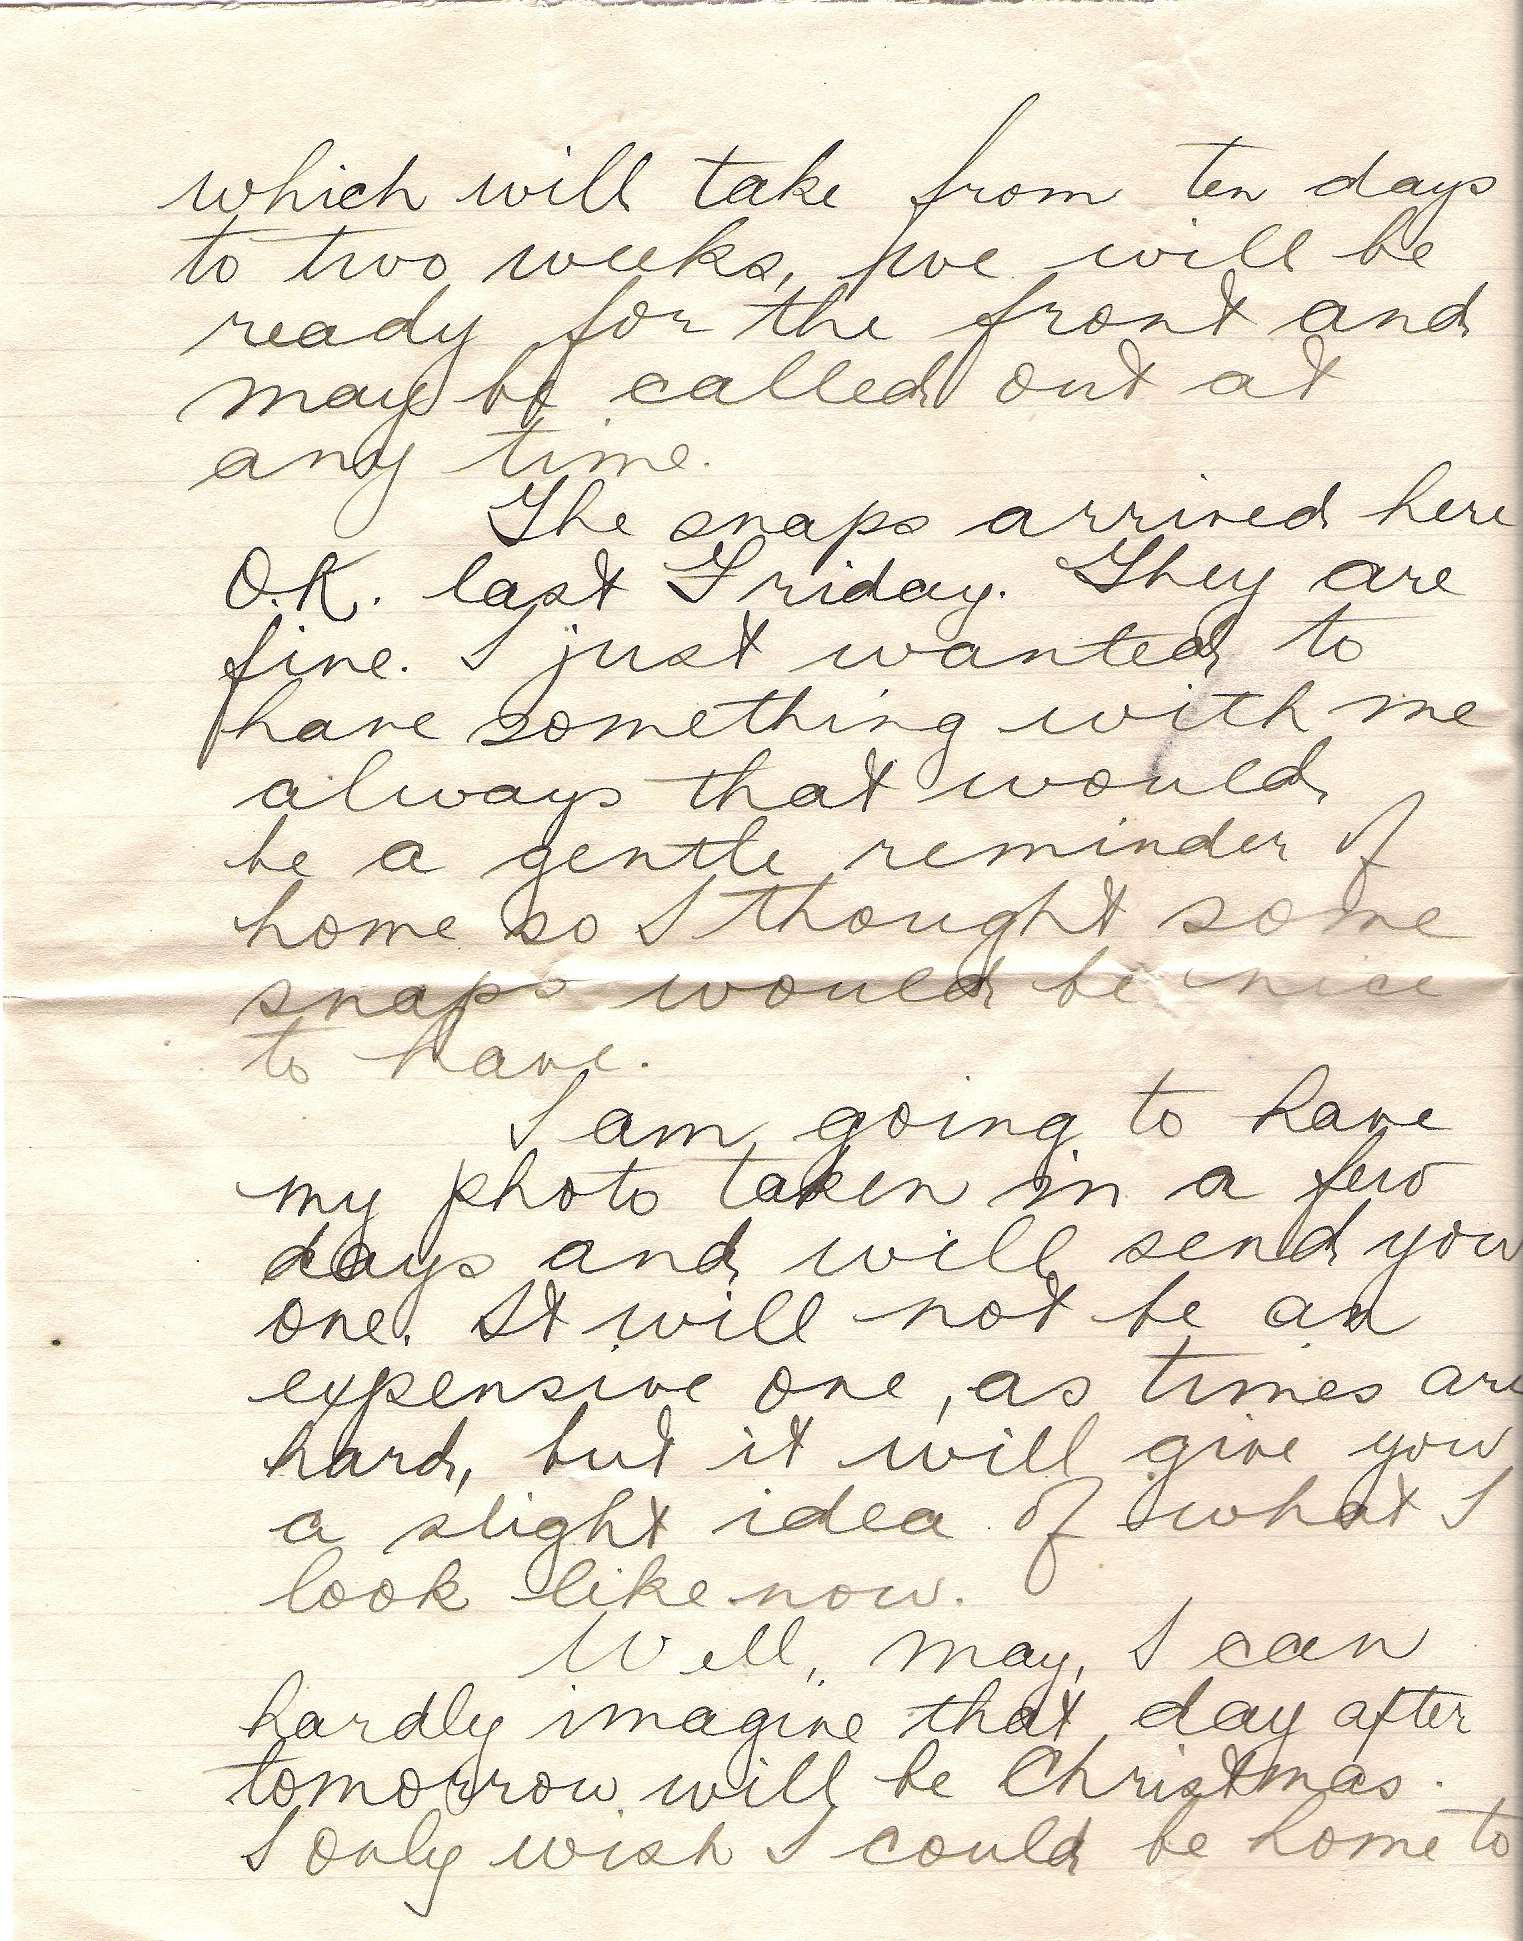 which will take from ten days
to two weeks, we will be
ready for the front and
may be called out at
any time.
The snaps arrived here
O.K. last Friday. They are
fine. I just wanted to
have something with me
always that would
be a gentle reminder of
home so I thought some
snaps would be nice
to have.
I am going to have
my photo taken in a few
days and will send you
one. It will not be an
expensive one, as times are
hard, but it will give you
a slight idea of what I
look like now.
Well, May, I can
hardly imagine that day after
tomorrow will be Christmas.
I only wish I could be home to